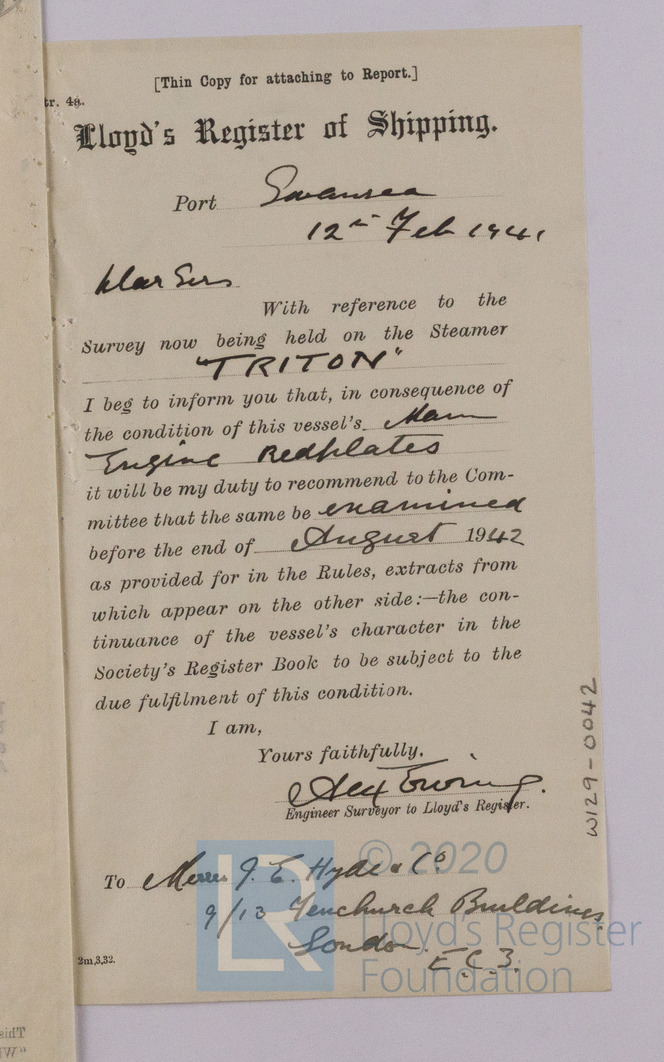 [Thin Copy for attaching to Report.]
tr. 4a.
Lloyd's Register of Shipping.
Port Swansea
12th Feb 1941
Dear Sirs
With reference to the
Survey now being held on the Steamer
"TRITON"
I beg to inform you that, in consequence of
the condition of this vessel's Main
Engine Bedplates
it will be my duty to recommend to the Com-
mittee that the same be examined
before the end of August 1942
as provided for in the Rules, extracts from
which appear on the other side:—the con-
tinuance of the vessel's character in the
Society's Register Book to be subject to the
due fulfilment of this condition.
I am,
Yours faithfully.
Engineer Surveyor to Lloyd's Register.
To Messrs J. E. Hyde & Co
9/13 Fenchurch Buildings
London
E.C.3.
2m,3,32.
W129-0042
© 2020
LR
Lloyd's Register
Foundation